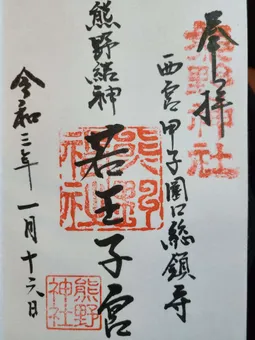 奉拝
熊野神社
西宮甲子園口総鎮守
熊野結神
若王子宮
熊野神社
令和三年一月十六日
熊野神社